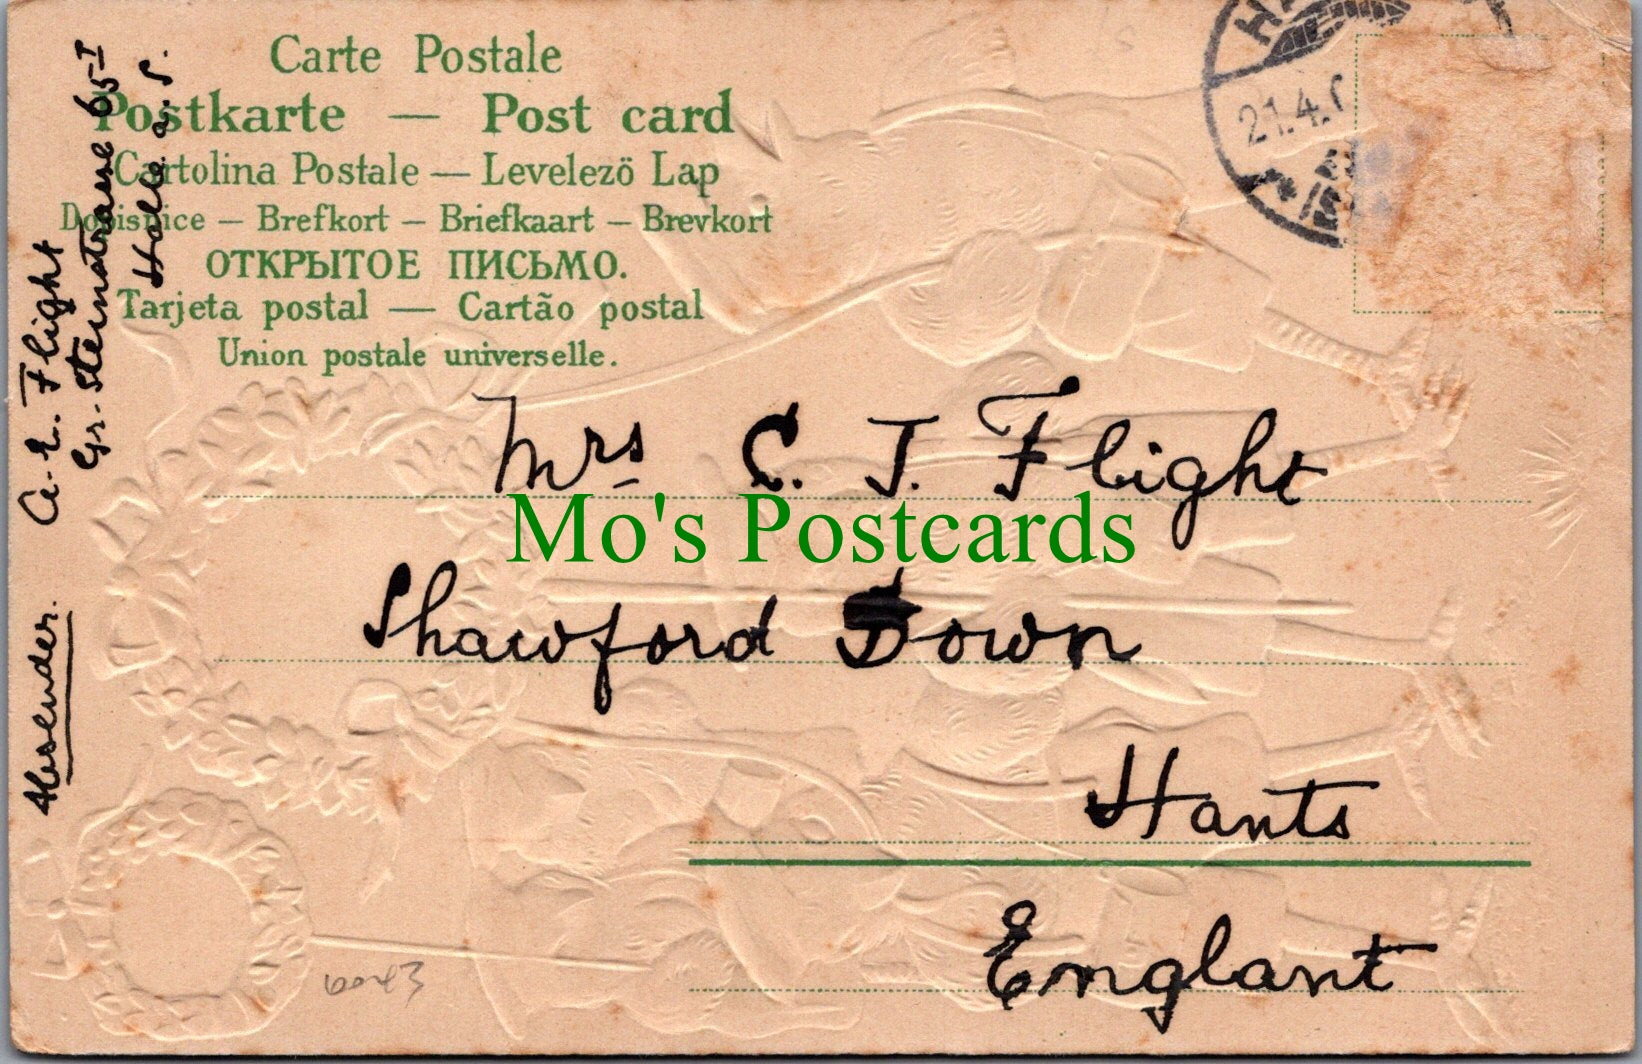 Carte Postale
Postkarte — Post card
Cartolina Postale — Levelező Lap
Dopisnice — Brefkort — Briefkaart — Brevkort
ОТКРЫТОЕ ПИСЬМО.
Tarjeta postal — Cartão postal
Union postale universelle.
21.4.
Mrs C. J. Flight
Mo's Postcards
Shawford Down
Hants
Englant
Absender.
A. E. Flight
Gr. Steinstrasse 65-I
Halle a. S.